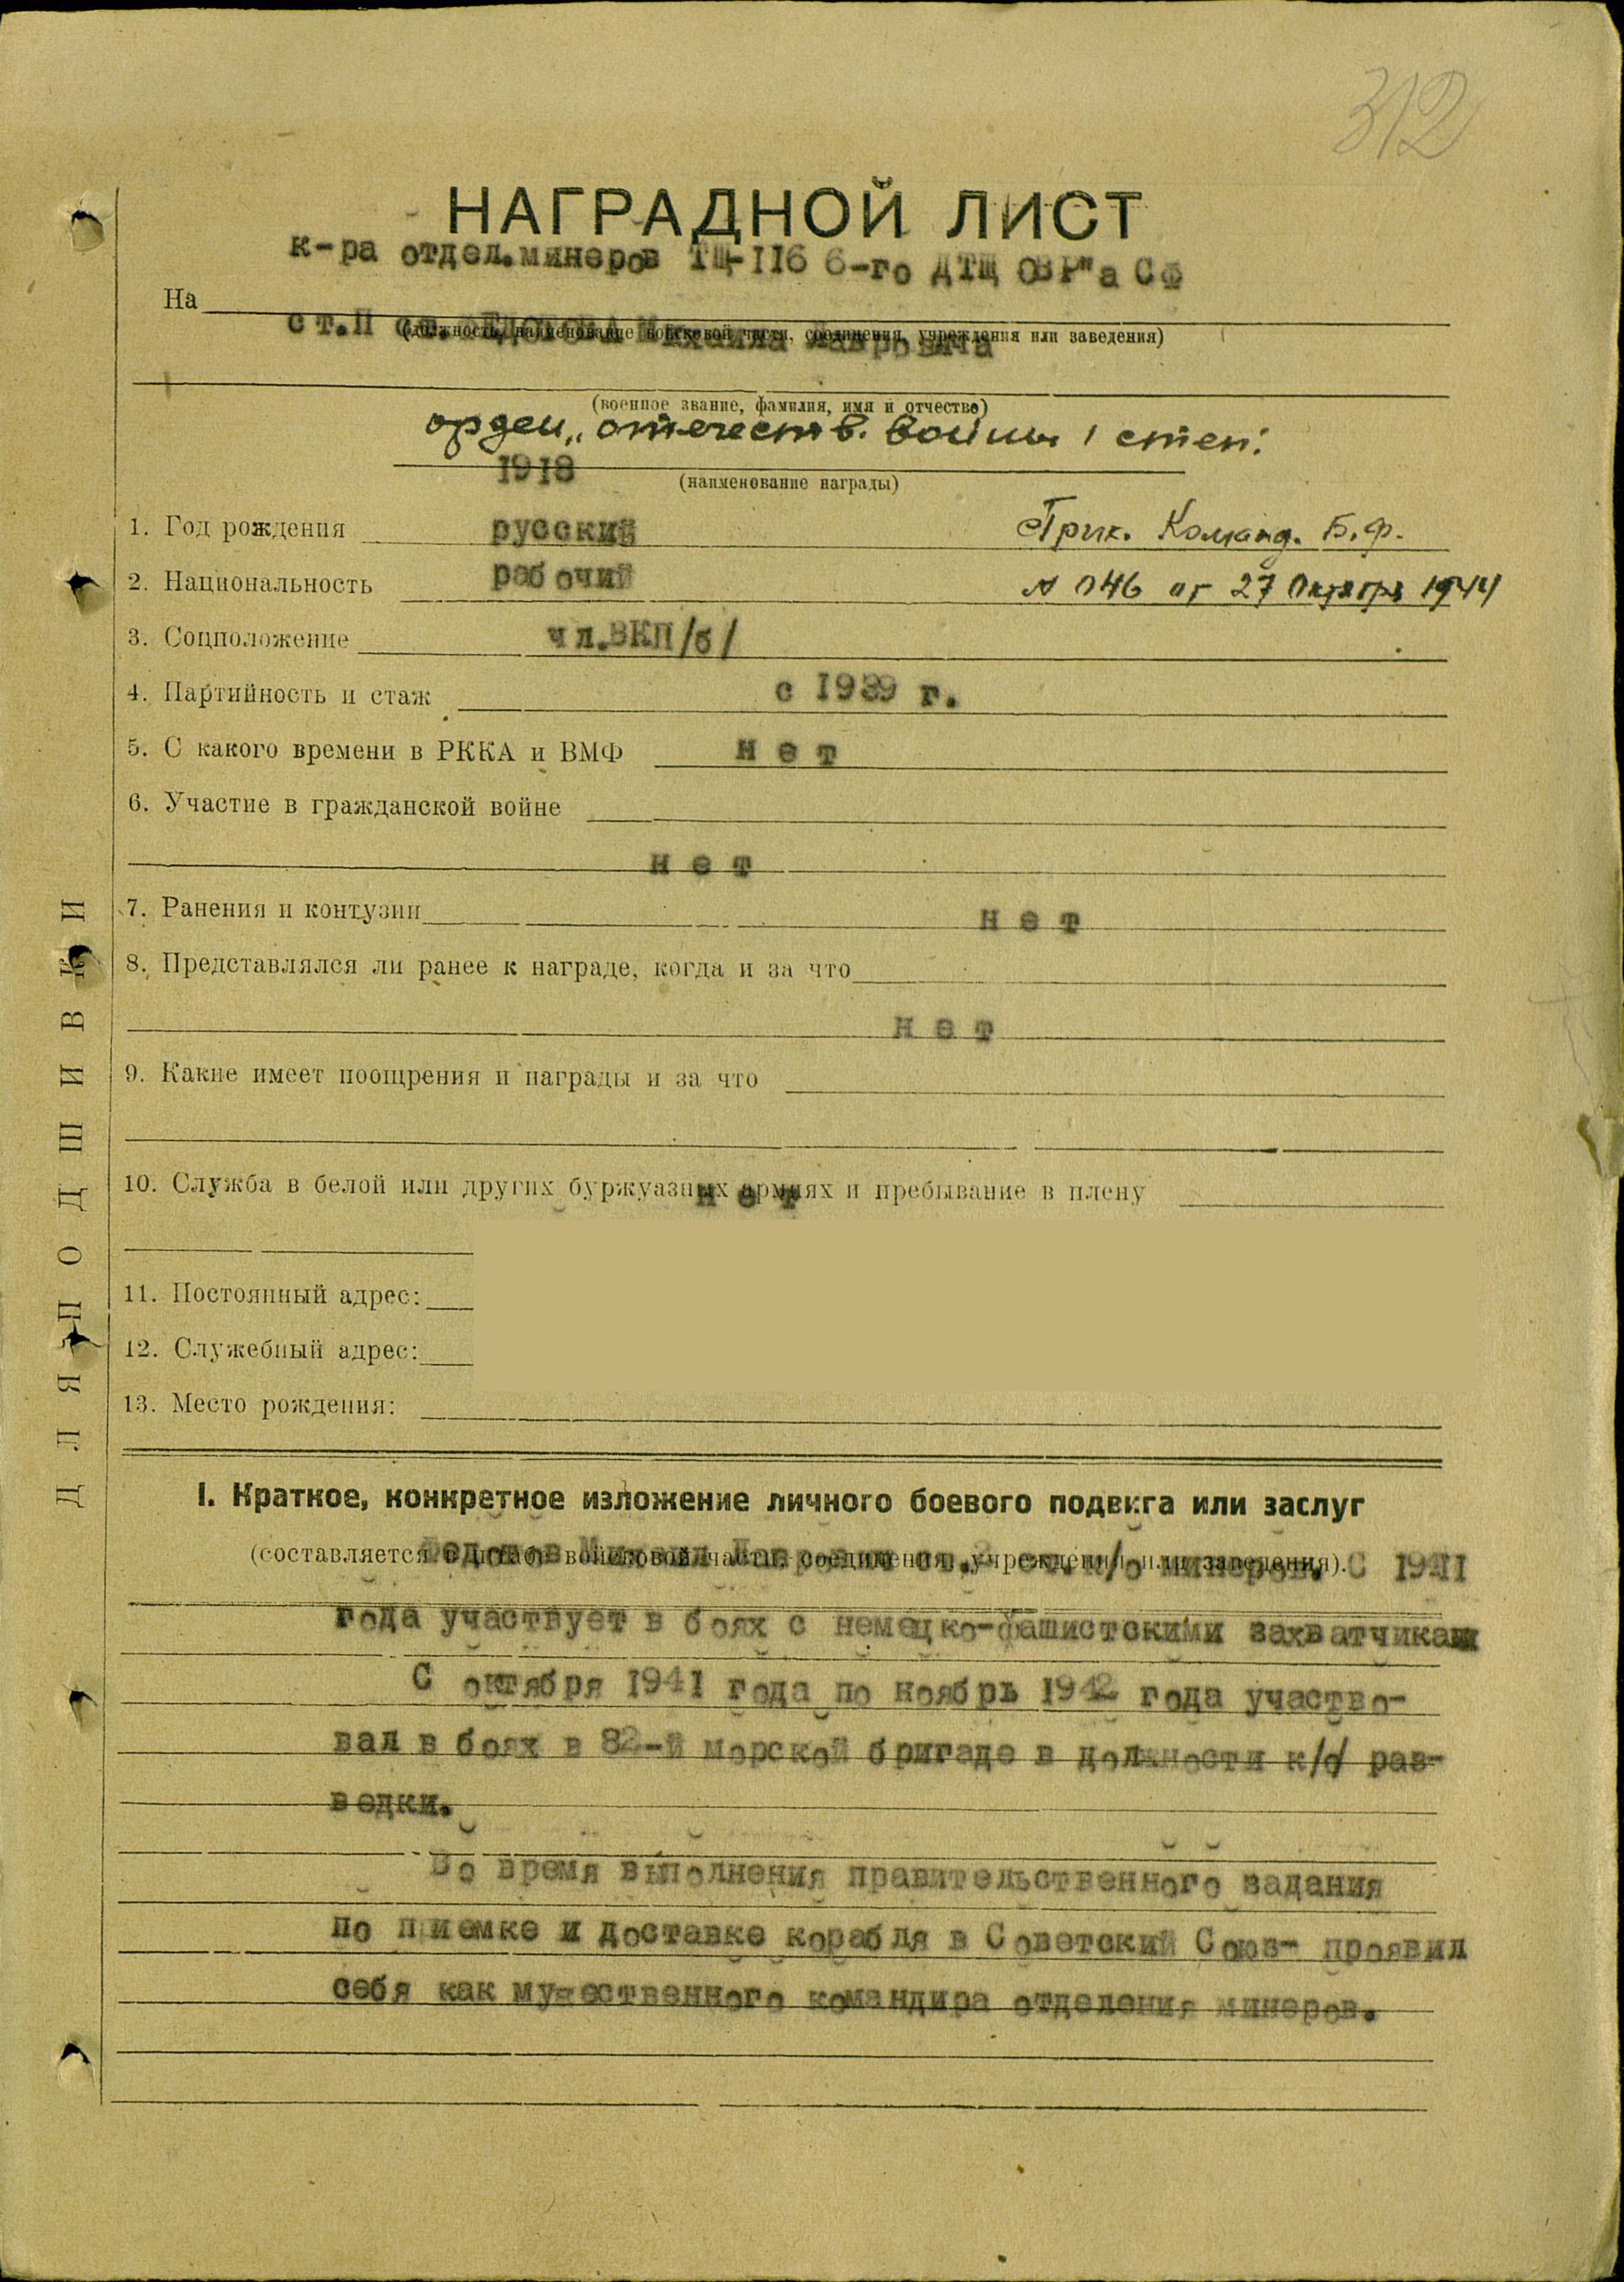 312
НАГРАДНОЙ ЛИСТ
к-ра отдел.минеров ТЩ-II6 6-го ДТЩ ОВР"а СФ
На
(должность, наименование войсковой части, соединения, учреждения или заведения)
ст.II ст. Михаила Лавровича
(военное звание, фамилия, имя и отчество)
орден „отечеств. войны 1 степ.
(наименование награды)
1918
1. Год рождения
русский
Прик. Команд. Б.Ф.
2. Национальность
рабочий
N 046 от 27 Октября 1944
3. Соцположение
чл.ВКП/б/
4. Партийность и стаж
с 1939 г.
5. С какого времени в РККА и ВМФ
нет
6. Участие в гражданской войне
нет
7. Ранения и контузии
нет
8. Представлялся ли ранее к награде, когда и за что
нет
9. Какие имеет поощрения и награды и за что
10. Служба в белой или других буржуазных армиях и пребывание в плену
нет
11. Постоянный адрес:
12. Служебный адрес:
13. Место рождения:
I. Краткое, конкретное изложение личного боевого подвига или заслуг
(составляется войсковой части, соединения, учреждения или заведения).
Михаил Лаврович ст.2 ст. к/о минеров. С 1941
года участвует в боях с немецко-фашистскими захватчикам
С октября 1941 года по ноябрь 1942 года участво-
вал в боях в 82-й морской бригаде в должности к/о раз-
ведки.
Во время выполнения правительственного задания
по приемке и доставке корабля в Советский Союз- проявил
себя как мужественного командира отделения минеров.
ДЛЯ ПОДШИВКИ